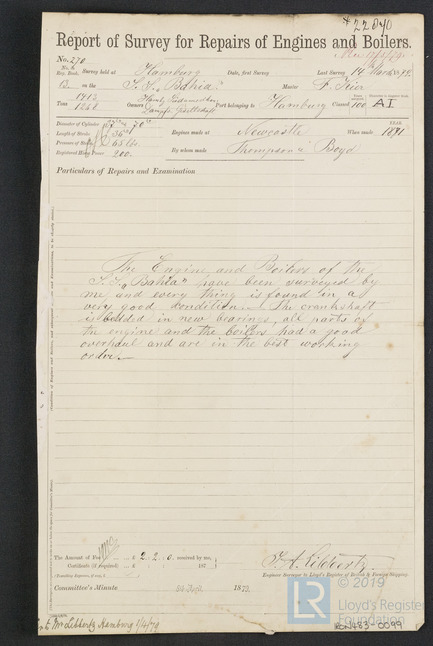 * 22840
Report of Survey for Repairs of Engines and Boilers.
No. 270
Survey held at Hamburg Date, first Survey Last Survey 14 March 1879
on the S.S. "Bahia" Master F. Peir
Tons 1413 Owners Port belonging to Hamburg Classed 100 A I
Diameter of Cylinder 70" YEAR.
Length of Stroke 36" Engines made at Newcastle When made 1871
Pressure of Steam 65 lbs. By whom made Thompson & Boyd
Registered Horse Power 200.
Particulars of Repairs and Examination
The Engine and Boilers of the
S.S. "Bahia" have been surveyed by
me and every thing is found in a
very good condition. The crankshaft
is bedded in new bearings, all parts of
the engine and the boilers had a good
overhaul and are in the best working
order.
The Amount of Fee £ 2.2.0. received by me,
Certificate (if required) £ 187
Engineer Surveyor to Lloyd's Register of British & Foreign Shipping.
Committee's Minute 1879.
© 2019
LR Lloyd's Register
Foundation
Hamburg 1/4/79
RON483-0099